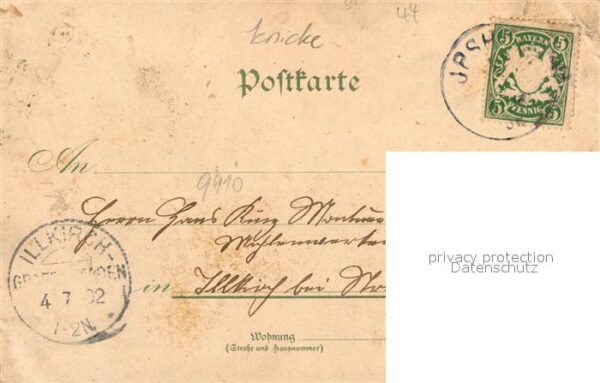 knicke
44
Postkarte
JPSH
5 BAYERN 5
5 PFENNIG 5
An
9910
Herrn Hans Kunz
Mühlenwerke
in Illkirch bei
ILLKIRCH-
4 7 02
1-2N.
Wohnung
(Straße und Hausnummer)
privacy protection
Datenschutz